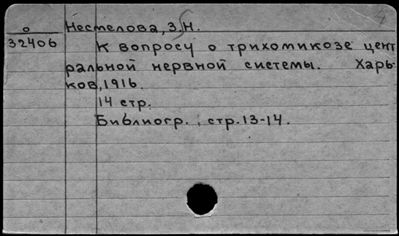 о
32406
Нестелова, З.Н.
К вопросу о трихомикозе цент
ральной нервной системы. Харь
ков, 1916.
14 стр.
Библиогр.: стр. 13-14.